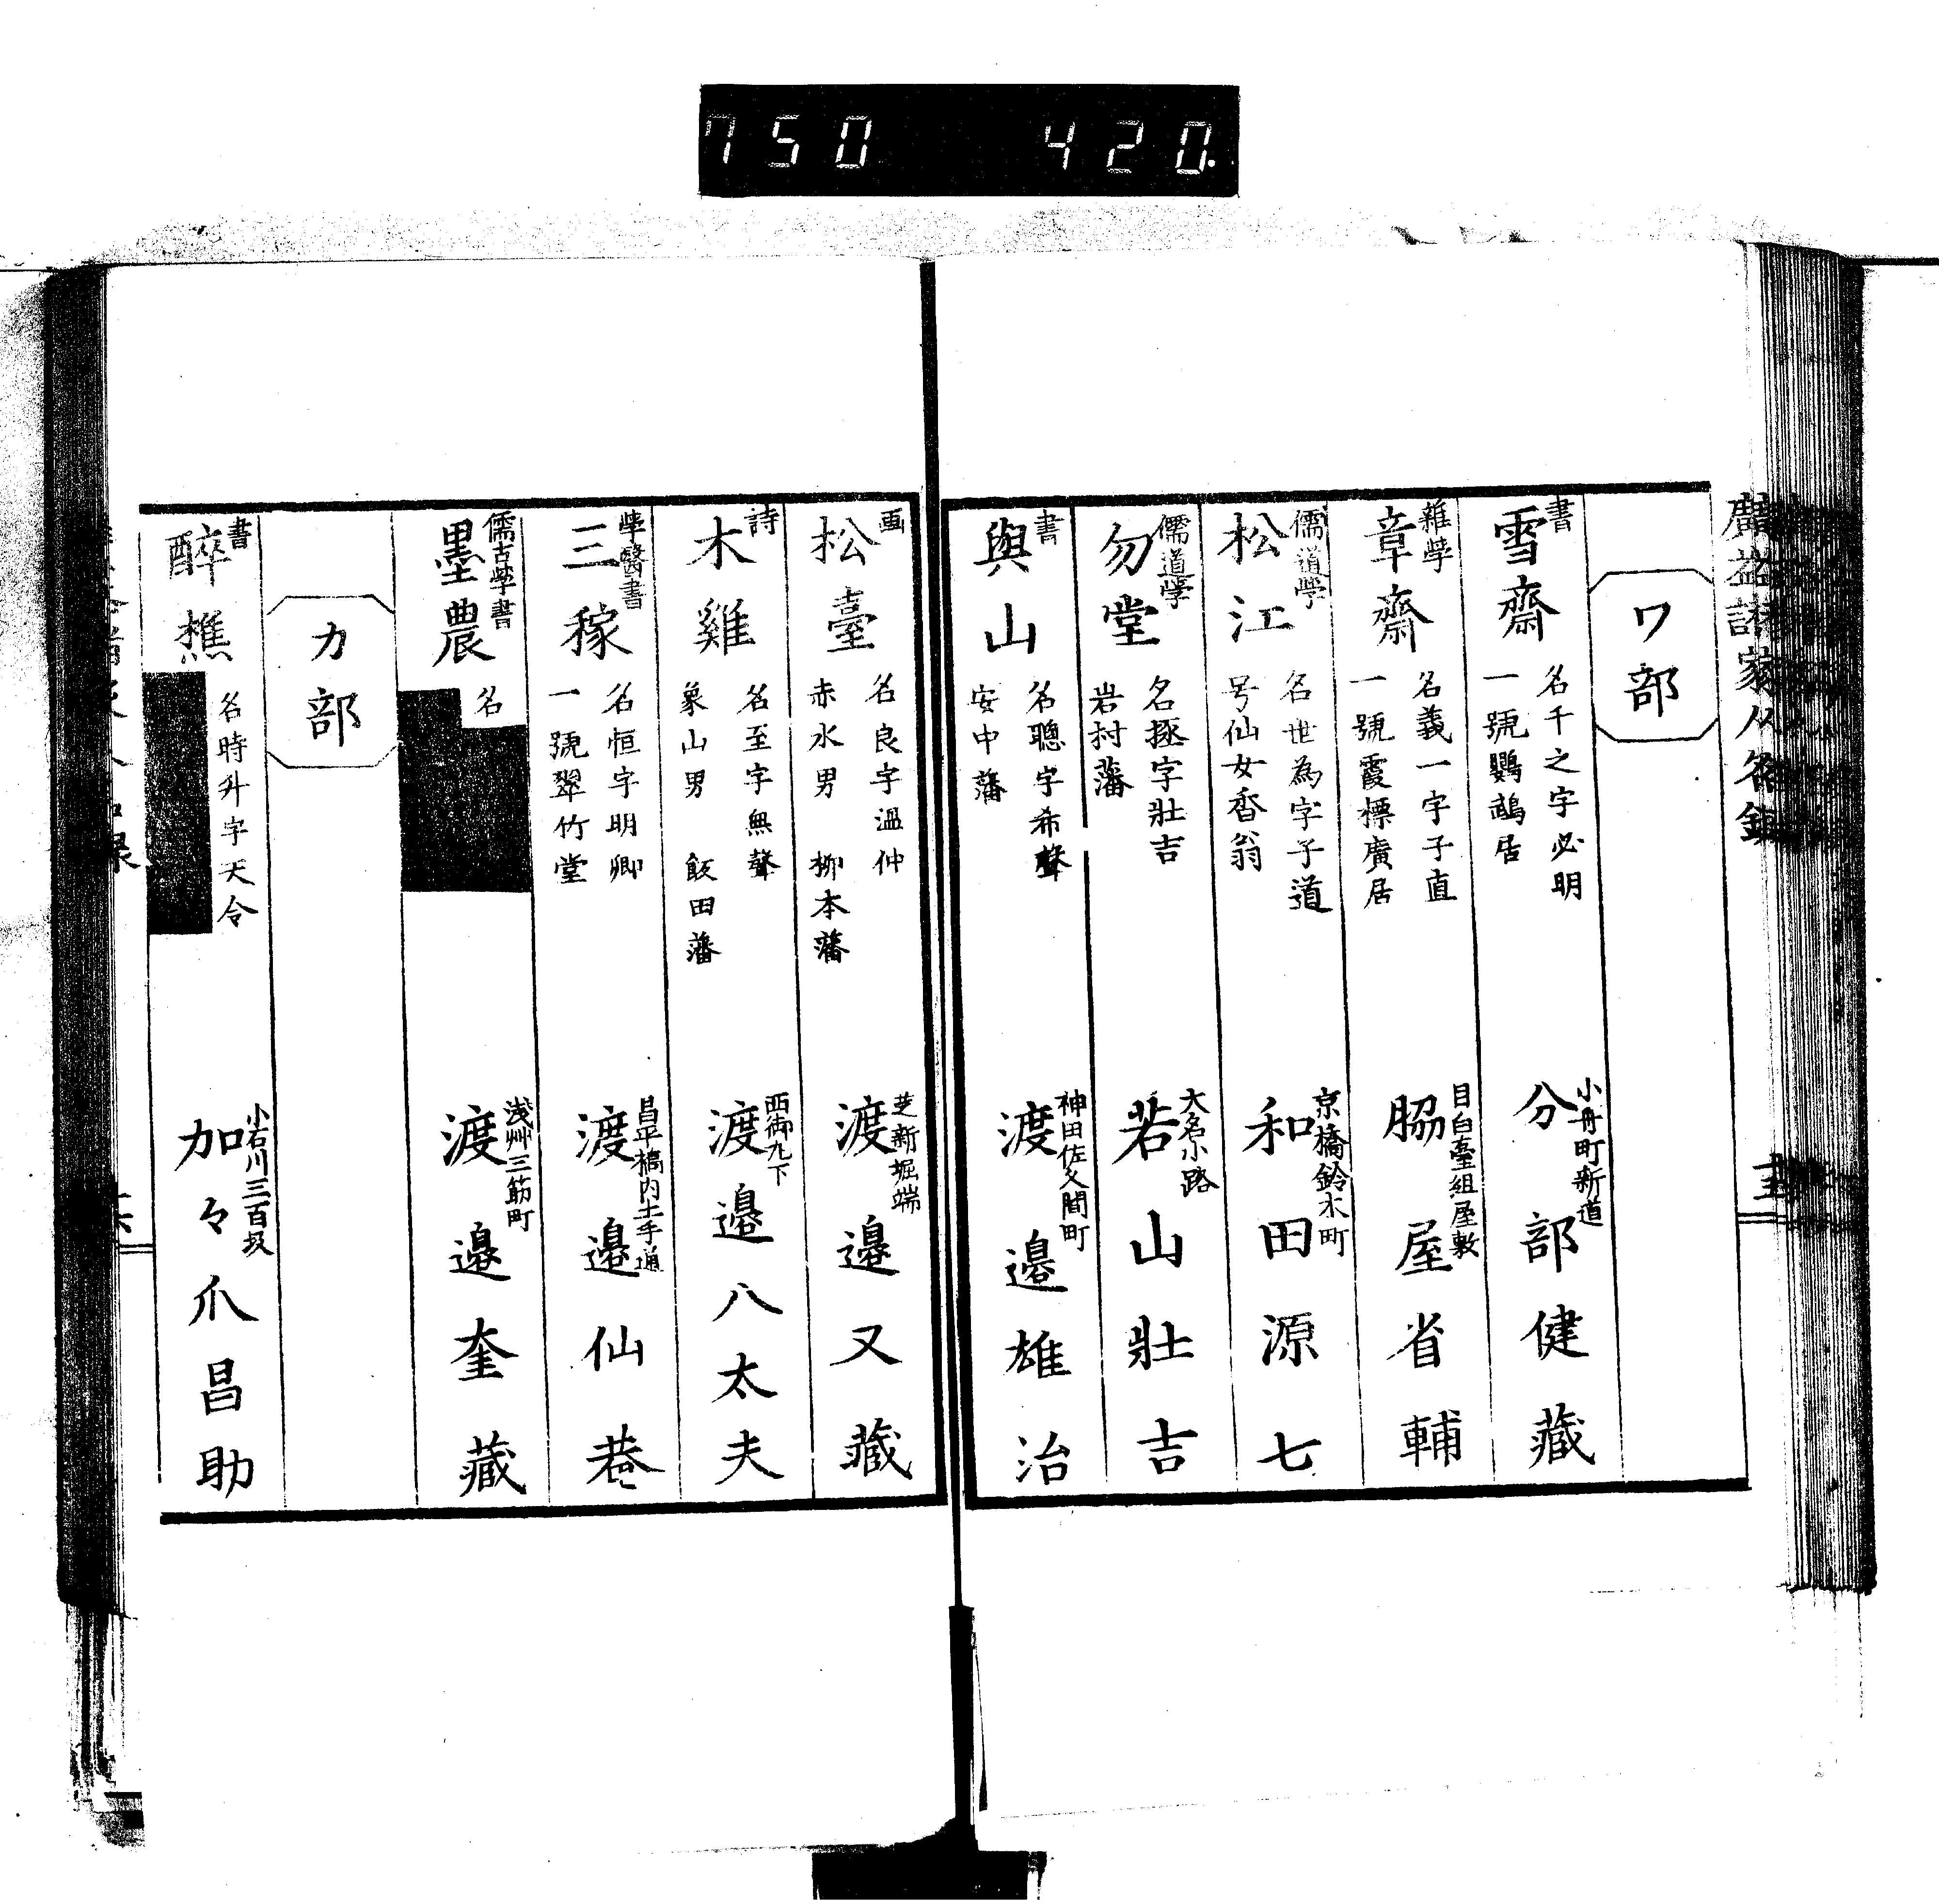 750 420.
廣益諸家人名録
ワ部
書
雪齋
名千之字必明
一號鸚鵡居
小舟町新道
分部健藏
雜學
章齋
名義一字子直
一號霞標廣居
目白臺組屋敷
脇屋省輔
儒道学
松江
名世為字子道
号仙女香翁
京橋鈴木町
和田源七
儒道學
勿堂
名拯字壯吉
岩村藩
大名小路
若山壯吉
書
與山
名聰字希聲
安中藩
神田佐久間町
渡邉雄治
画
松臺
名良字溫仲
赤水男 柳本藩
芝新堀端
渡邉又藏
詩
木雞
名至字無聲
象山男 飯田藩
西御丸下
渡邉八太夫
學醫書
三稼
名恒字明卿
一號翠竹堂
昌平橋内土手通
渡邉仙巷
儒古學書
墨農
名
淺艸三筋町
渡邉奎藏
カ部
書
醉樵
名時升字天合
小石川三百坂
加々爪昌助